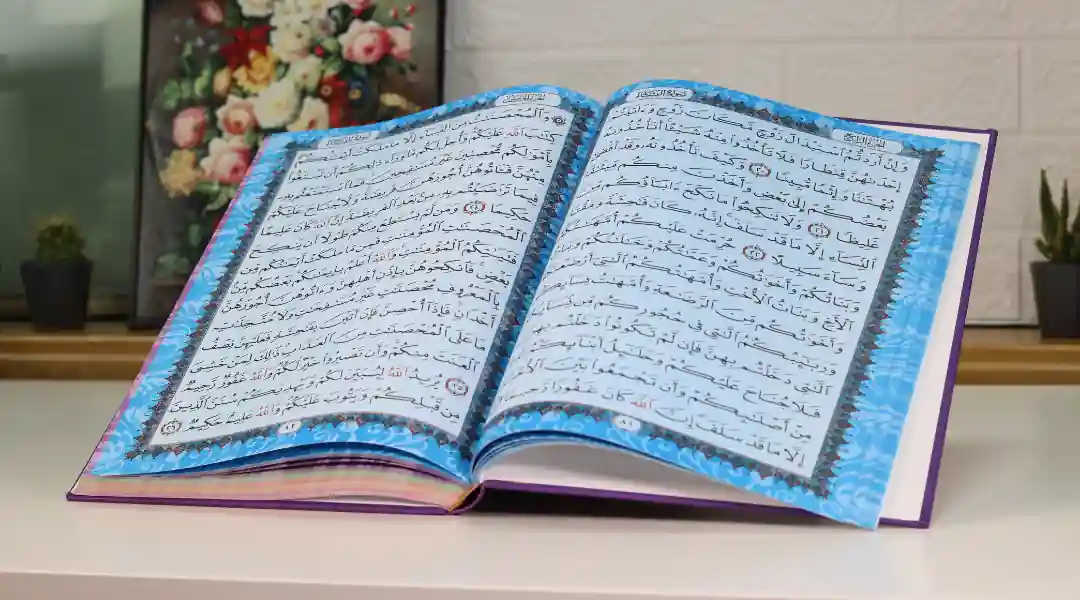 سُورَةُ النِّسَاءِ
وَإِنْ أَرَدتُّمُ ٱسْتِبْدَالَ زَوْجٍ مَّكَانَ زَوْجٍ وَءَاتَيْتُمْ
إِحْدَىٰهُنَّ قِنطَارًا فَلَا تَأْخُذُوا۟ مِنْهُ شَيْـًٔا أَتَأْخُذُونَهُۥ
بُهْتَٰنًا وَإِثْمًا مُّبِينًا ٢٠ وَكَيْفَ تَأْخُذُونَهُۥ وَقَدْ أَفْضَىٰ
بَعْضُكُمْ إِلَىٰ بَعْضٍ وَأَخَذْنَ مِنكُم مِّيثَٰقًا
غَلِيظًا ٢١ وَلَا تَنكِحُوا۟ مَا نَكَحَ ءَابَآؤُكُم مِّنَ
ٱلنِّسَآءِ إِلَّا مَا قَدْ سَلَفَ إِنَّهُۥ كَانَ فَٰحِشَةً وَمَقْتًا
وَسَآءَ سَبِيلًا ٢٢ حُرِّمَتْ عَلَيْكُمْ أُمَّهَٰتُكُمْ
وَبَنَاتُكُمْ وَأَخَوَٰتُكُمْ وَعَمَّٰتُكُمْ وَخَٰلَٰتُكُمْ وَبَنَاتُ
ٱلْأَخِ وَبَنَاتُ ٱلْأُخْتِ وَأُمَّهَٰتُكُمُ ٱلَّٰتِىٓ أَرْضَعْنَكُمْ
وَأَخَوَٰتُكُم مِّنَ ٱلرَّضَٰعَةِ وَأُمَّهَٰتُ نِسَآئِكُمْ
وَرَبَٰٓئِبُكُمُ ٱلَّٰتِى فِى حُجُورِكُم مِّن نِّسَآئِكُمُ
ٱلَّٰتِى دَخَلْتُم بِهِنَّ فَإِن لَّمْ تَكُونُوا۟ دَخَلْتُم بِهِنَّ
فَلَا جُنَاحَ عَلَيْكُمْ وَحَلَٰٓئِلُ أَبْنَآئِكُمُ ٱلَّذِينَ
مِنْ أَصْلَٰبِكُمْ وَأَن تَجْمَعُوا۟ بَيْنَ ٱلْأُخْتَيْنِ
إِلَّا مَا قَدْ سَلَفَ إِنَّ ٱللَّهَ كَانَ غَفُورًا رَّحِيمًا
٨١
وَٱلْمُحْصَنَٰتُ مِنَ ٱلنِّسَآءِ إِلَّا مَا مَلَكَتْ أَيْمَٰنُكُمْ
كِتَٰبَ ٱللَّهِ عَلَيْكُمْ وَأُحِلَّ لَكُم مَّا وَرَآءَ ذَٰلِكُمْ أَن تَبْتَغُوا۟
بِأَمْوَٰلِكُم مُّحْصِنِينَ غَيْرَ مُسَٰفِحِينَ فَمَا ٱسْتَمْتَعْتُم بِهِۦ
مِنْهُنَّ فَـَٔاتُوهُنَّ أُجُورَهُنَّ فَرِيضَةً وَلَا جُنَاحَ عَلَيْكُمْ
فِيمَا تَرَٰضَيْتُم بِهِۦ مِنۢ بَعْدِ ٱلْفَرِيضَةِ إِنَّ ٱللَّهَ كَانَ عَلِيمًا
حَكِيمًا ٢٤ وَمَن لَّمْ يَسْتَطِعْ مِنكُمْ طَوْلًا أَن يَنكِحَ
ٱلْمُحْصَنَٰتِ ٱلْمُؤْمِنَٰتِ فَمِن مَّا مَلَكَتْ أَيْمَٰنُكُم مِّن
فَتَيَٰتِكُمُ ٱلْمُؤْمِنَٰتِ وَٱللَّهُ أَعْلَمُ بِإِيمَٰنِكُم بَعْضُكُم مِّنۢ
بَعْضٍ فَٱنكِحُوهُنَّ بِإِذْنِ أَهْلِهِنَّ وَءَاتُوهُنَّ أُجُورَهُنَّ
بِٱلْمَعْرُوفِ مُحْصَنَٰتٍ غَيْرَ مُسَٰفِحَٰتٍ وَلَا مُتَّخِذَٰتِ
أَخْدَانٍ فَإِذَآ أُحْصِنَّ فَإِنْ أَتَيْنَ بِفَٰحِشَةٍ فَعَلَيْهِنَّ نِصْفُ
مَا عَلَى ٱلْمُحْصَنَٰتِ مِنَ ٱلْعَذَابِ ذَٰلِكَ لِمَنْ خَشِىَ
ٱلْعَنَتَ مِنكُمْ وَأَن تَصْبِرُوا۟ خَيْرٌ لَّكُمْ وَٱللَّهُ غَفُورٌ رَّحِيمٌ
٢٥ يُرِيدُ ٱللَّهُ لِيُبَيِّنَ لَكُمْ وَيَهْدِيَكُمْ سُنَنَ ٱلَّذِينَ
مِن قَبْلِكُمْ وَيَتُوبَ عَلَيْكُمْ وَٱللَّهُ عَلِيمٌ حَكِيمٌ ٢٦
٨٢